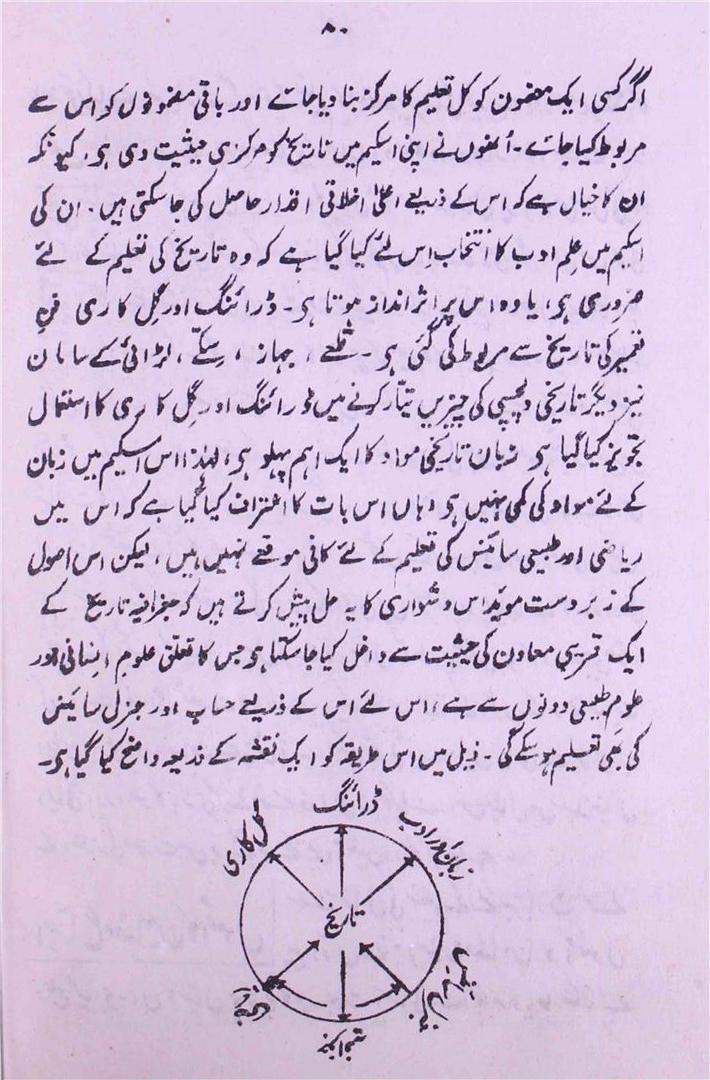 ۸۰
اگر کسی ایک مضمون کو کل تعلیم کا مرکز بنا دیا جائے اور باقی مضمونوں کو اس سے
مربوط کیا جائے۔ اُنھوں نے اپنی اسکیم میں تاریخ کو مرکزی حیثیت دی ہو، کیونکہ
ان کا خیال ہے کہ اس کے ذریعے اعلیٰ اخلاقی اقدار حاصل کی جا سکتی ہیں۔ ان کی
اسکیم میں علم ادب کا انتخاب اِس لئے کیا گیا ہے کہ وہ تاریخ کی تعلیم کے لئے
ضروری ہو، یا وہ اس پر اثر انداز ہوتا ہو۔ ڈرائنگ اور گِل کاری فنِ
تعمیر کی تاریخ سے مربوط کی گئی ہو۔ قلعے، جہاز، سکّے، لڑائی کے سامان
نیز دیگر تاریخی دلچسپی کی چیزیں تیار کرنے میں ڈرائنگ اور گِل کاری کا استعمال
تجویز کیا گیا ہو زبان تاریخی مواد کا ایک اہم پہلو ہو، لہٰذا اس اسکیم میں زبان
کے لئے مواد کی کمی نہیں ہو وہاں اس بات کا اعتراف کیا گیا ہے کہ اس میں
ریاضی اور طبیعی سائنس کی تعلیم کے لئے کافی موقعے نہیں ہیں، لیکن اس اصول
کے زبردست موید اس دشواری کا یہ حل پیش کرتے ہیں کہ جغرافیہ تاریخ کے
ایک قریبی معاون کی حیثیت سے داخل کیا جا سکتا ہو جس کا تعلق علومِ انسانی اور
علومِ طبیعی دونوں سے ہے، اس لئے اس کے ذریعے حساب اور جنرل سائنس
کی بھی تعلیم ہو سکے گی۔ ذیل میں اس طریقہ کو ایک نقشہ کے ذریعہ واضح کیا گیا ہو۔
ڈرائنگ
گل کاری
زبان اور ادب
تاریخ
جغرافیہ